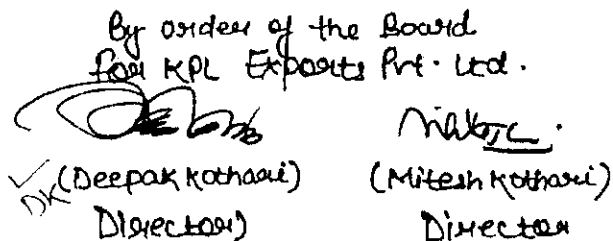 By order of the Board
for KPL Exports Pvt. Ltd.
DK (Deepak Kothari) (Mitesh Kothari)
Director) Director